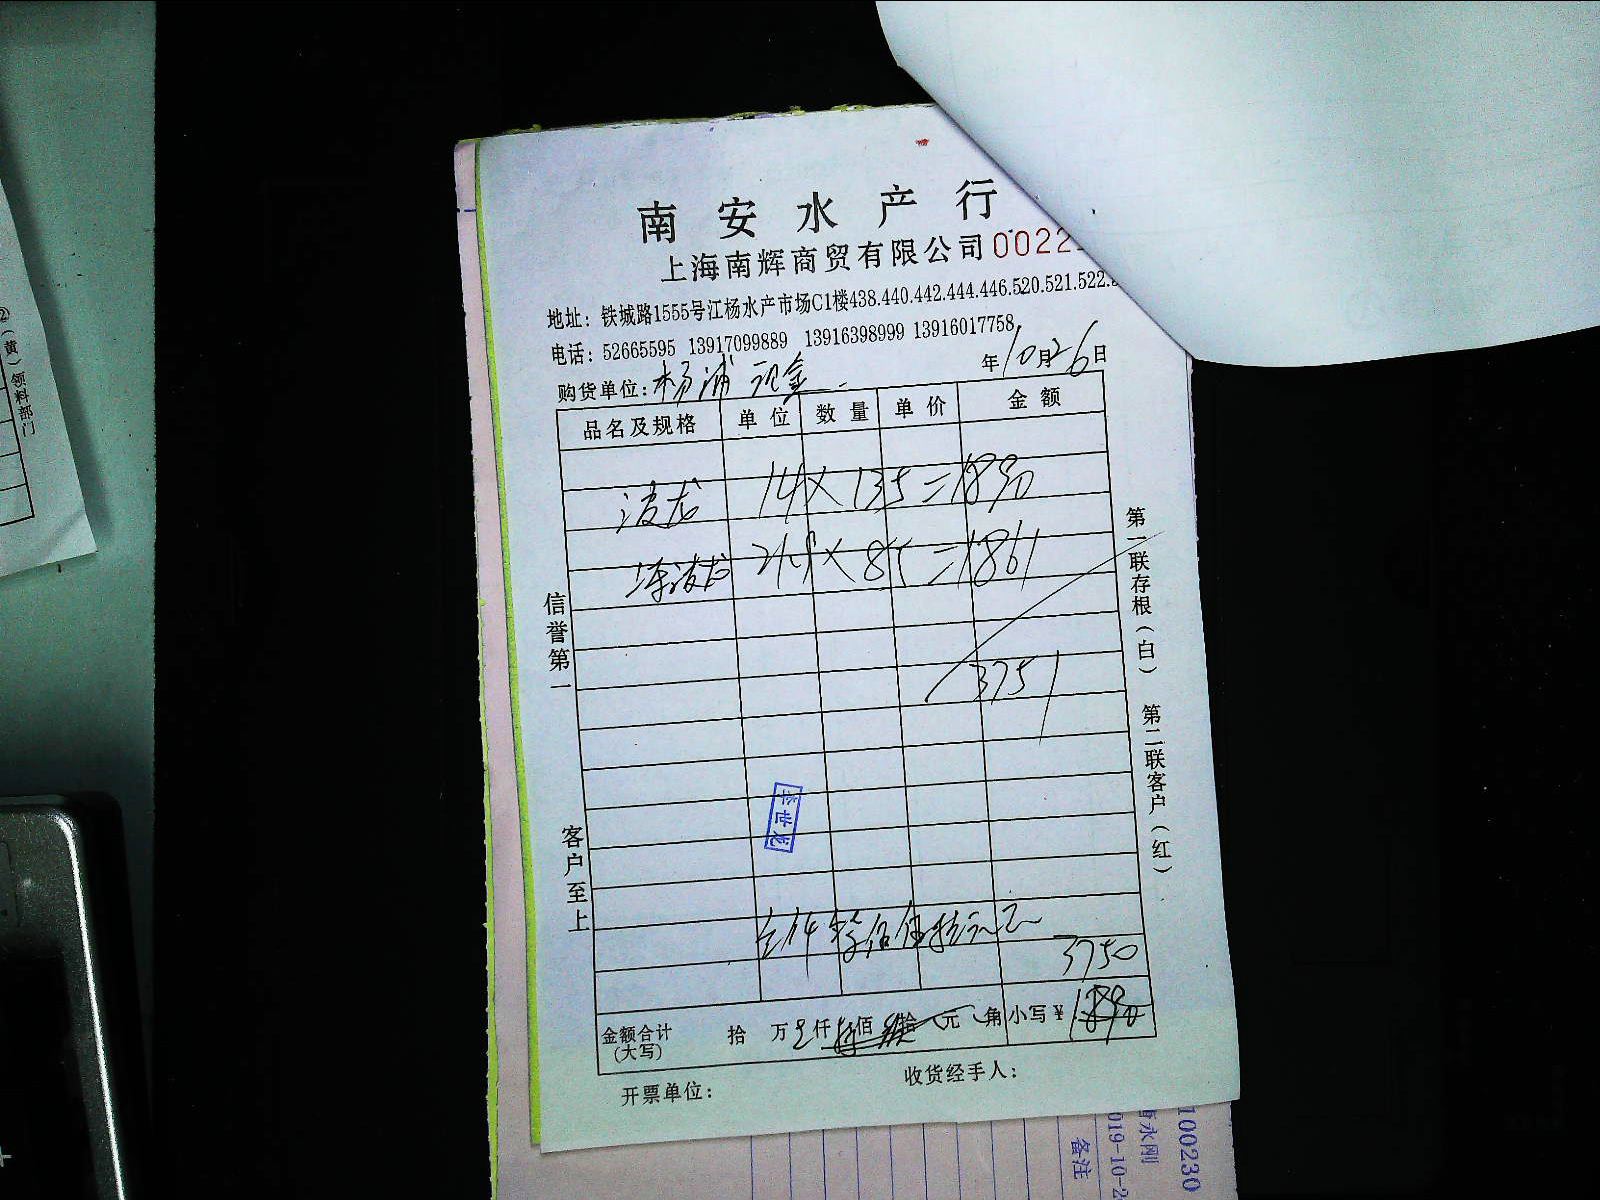 南安水产行
上海南辉商贸有限公司 0022
地址：铁城路1555号江杨水产市场C1楼438.440.442.444.446.520.521.522.
电话：52665595 13917099889 13916398999 13916017758
年10月26日
购货单位：杨浦 现金
品名及规格 单位 数量 单价 金额
波龙 14×135=1890
冻波龙 21.9×85=1861
3751
3750
金额合计（大写） 拾 万 仟 佰 拾 元 角 小写¥
开票单位： 收货经手人：
信誉第一
客户至上
第一联存根（白） 第二联客户（红）
世龙
②（黄）领料部门
100230
永刚
019-10-2
备注